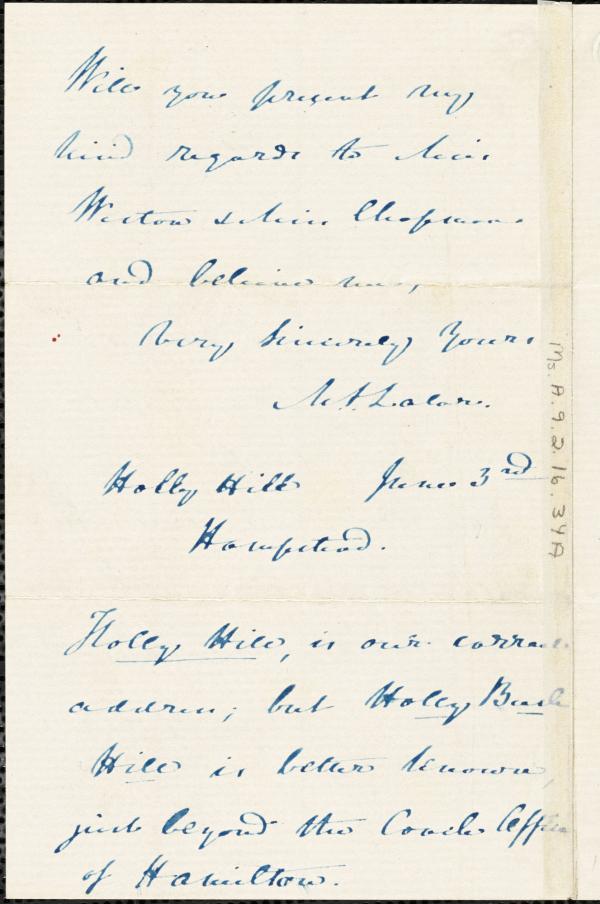 Will you present my
kind regards to Miss
Weston & Miss Chapman
and believe me,
Very Sincerely Yours
M. A. Lalor.
Holly Hill June 3rd
Hampstead.
Holly Hill, is our correct
address; but Holly Bush
Hill is better known,
just beyond the Coach Office
of Hamilton.
Ms. A. 9. 2. 16. 34A